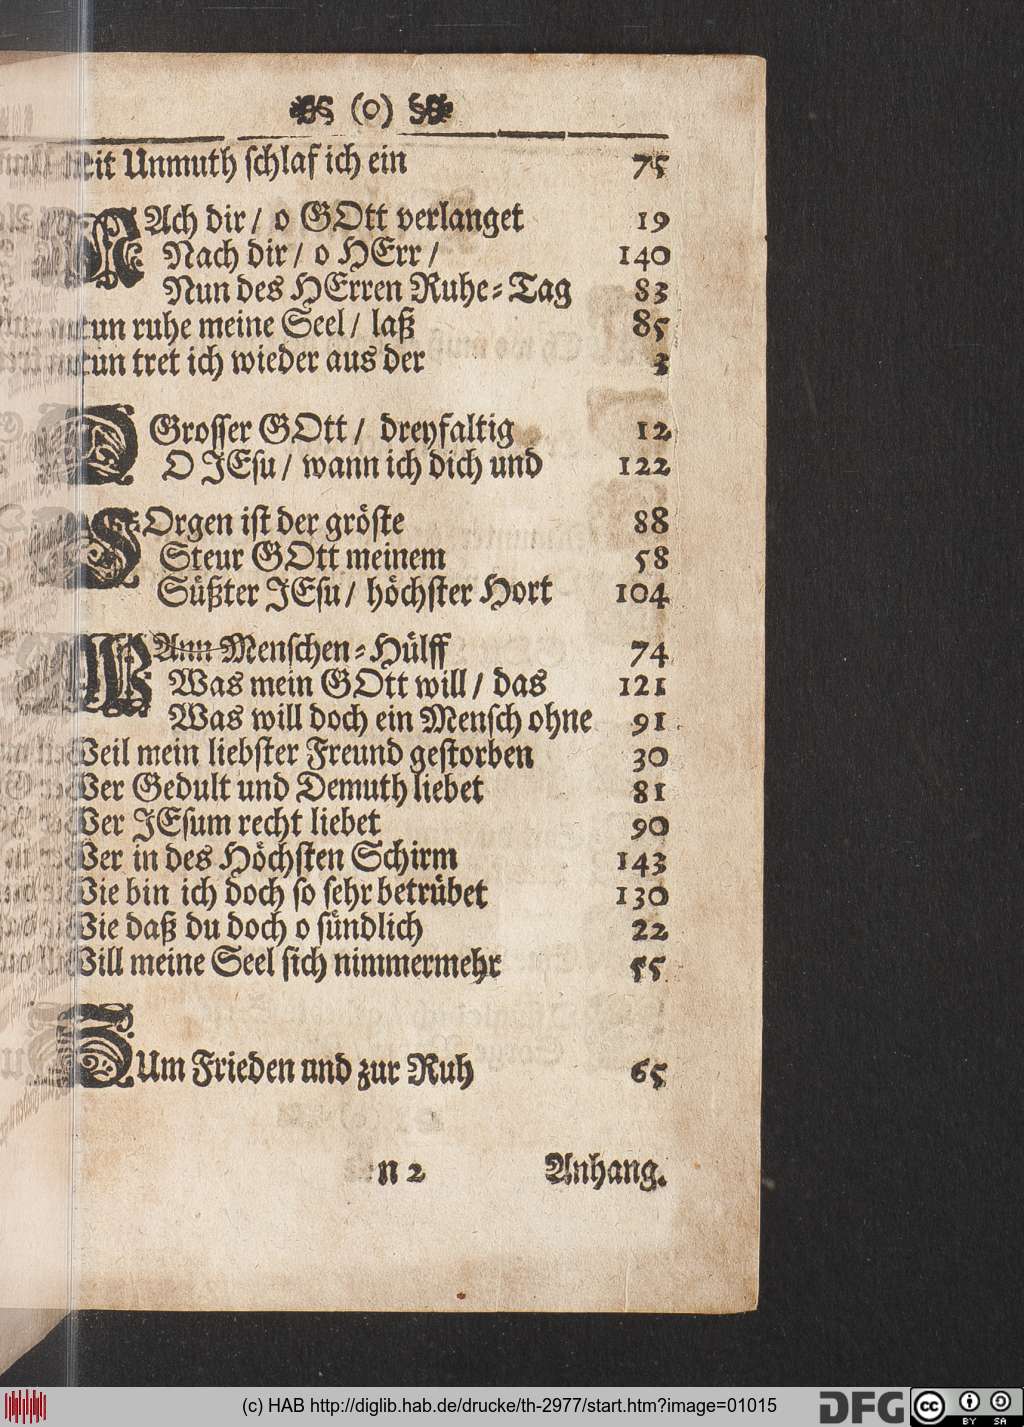 (o)
Mit Unmuth schlaf ich ein 75
NAch dir / o GOtt verlanget 19
Nach dir / o HErr / 140
Nun des HErren Ruhe-Tag 83
Nun ruhe meine Seel / laß 85
Nun tret ich wieder aus der 3
O Grosser GOtt / dreyfaltig 12
O JEsu / wann ich dich und 122
SOrgen ist der gröste 88
Steur GOtt meinem 58
Süßter JEsu / höchster Hort 104
WAnn Menschen-Hülff 74
Was mein GOtt will / das 121
Was will doch ein Mensch ohne 91
Weil mein liebster Freund gestorben 30
Wer Gedult und Demuth liebet 81
Wer JEsum recht liebet 90
Wer in des Höchsten Schirm 143
Wie bin ich doch so sehr betrübet 130
Wie daß du doch o sündlich 22
Will meine Seel sich nimmermehr 55
ZUm Frieden und zur Ruh 65
n 2 Anhang.
(c) HAB http://diglib.hab.de/drucke/th-2977/start.htm?image=01015
DFG cc BY SA